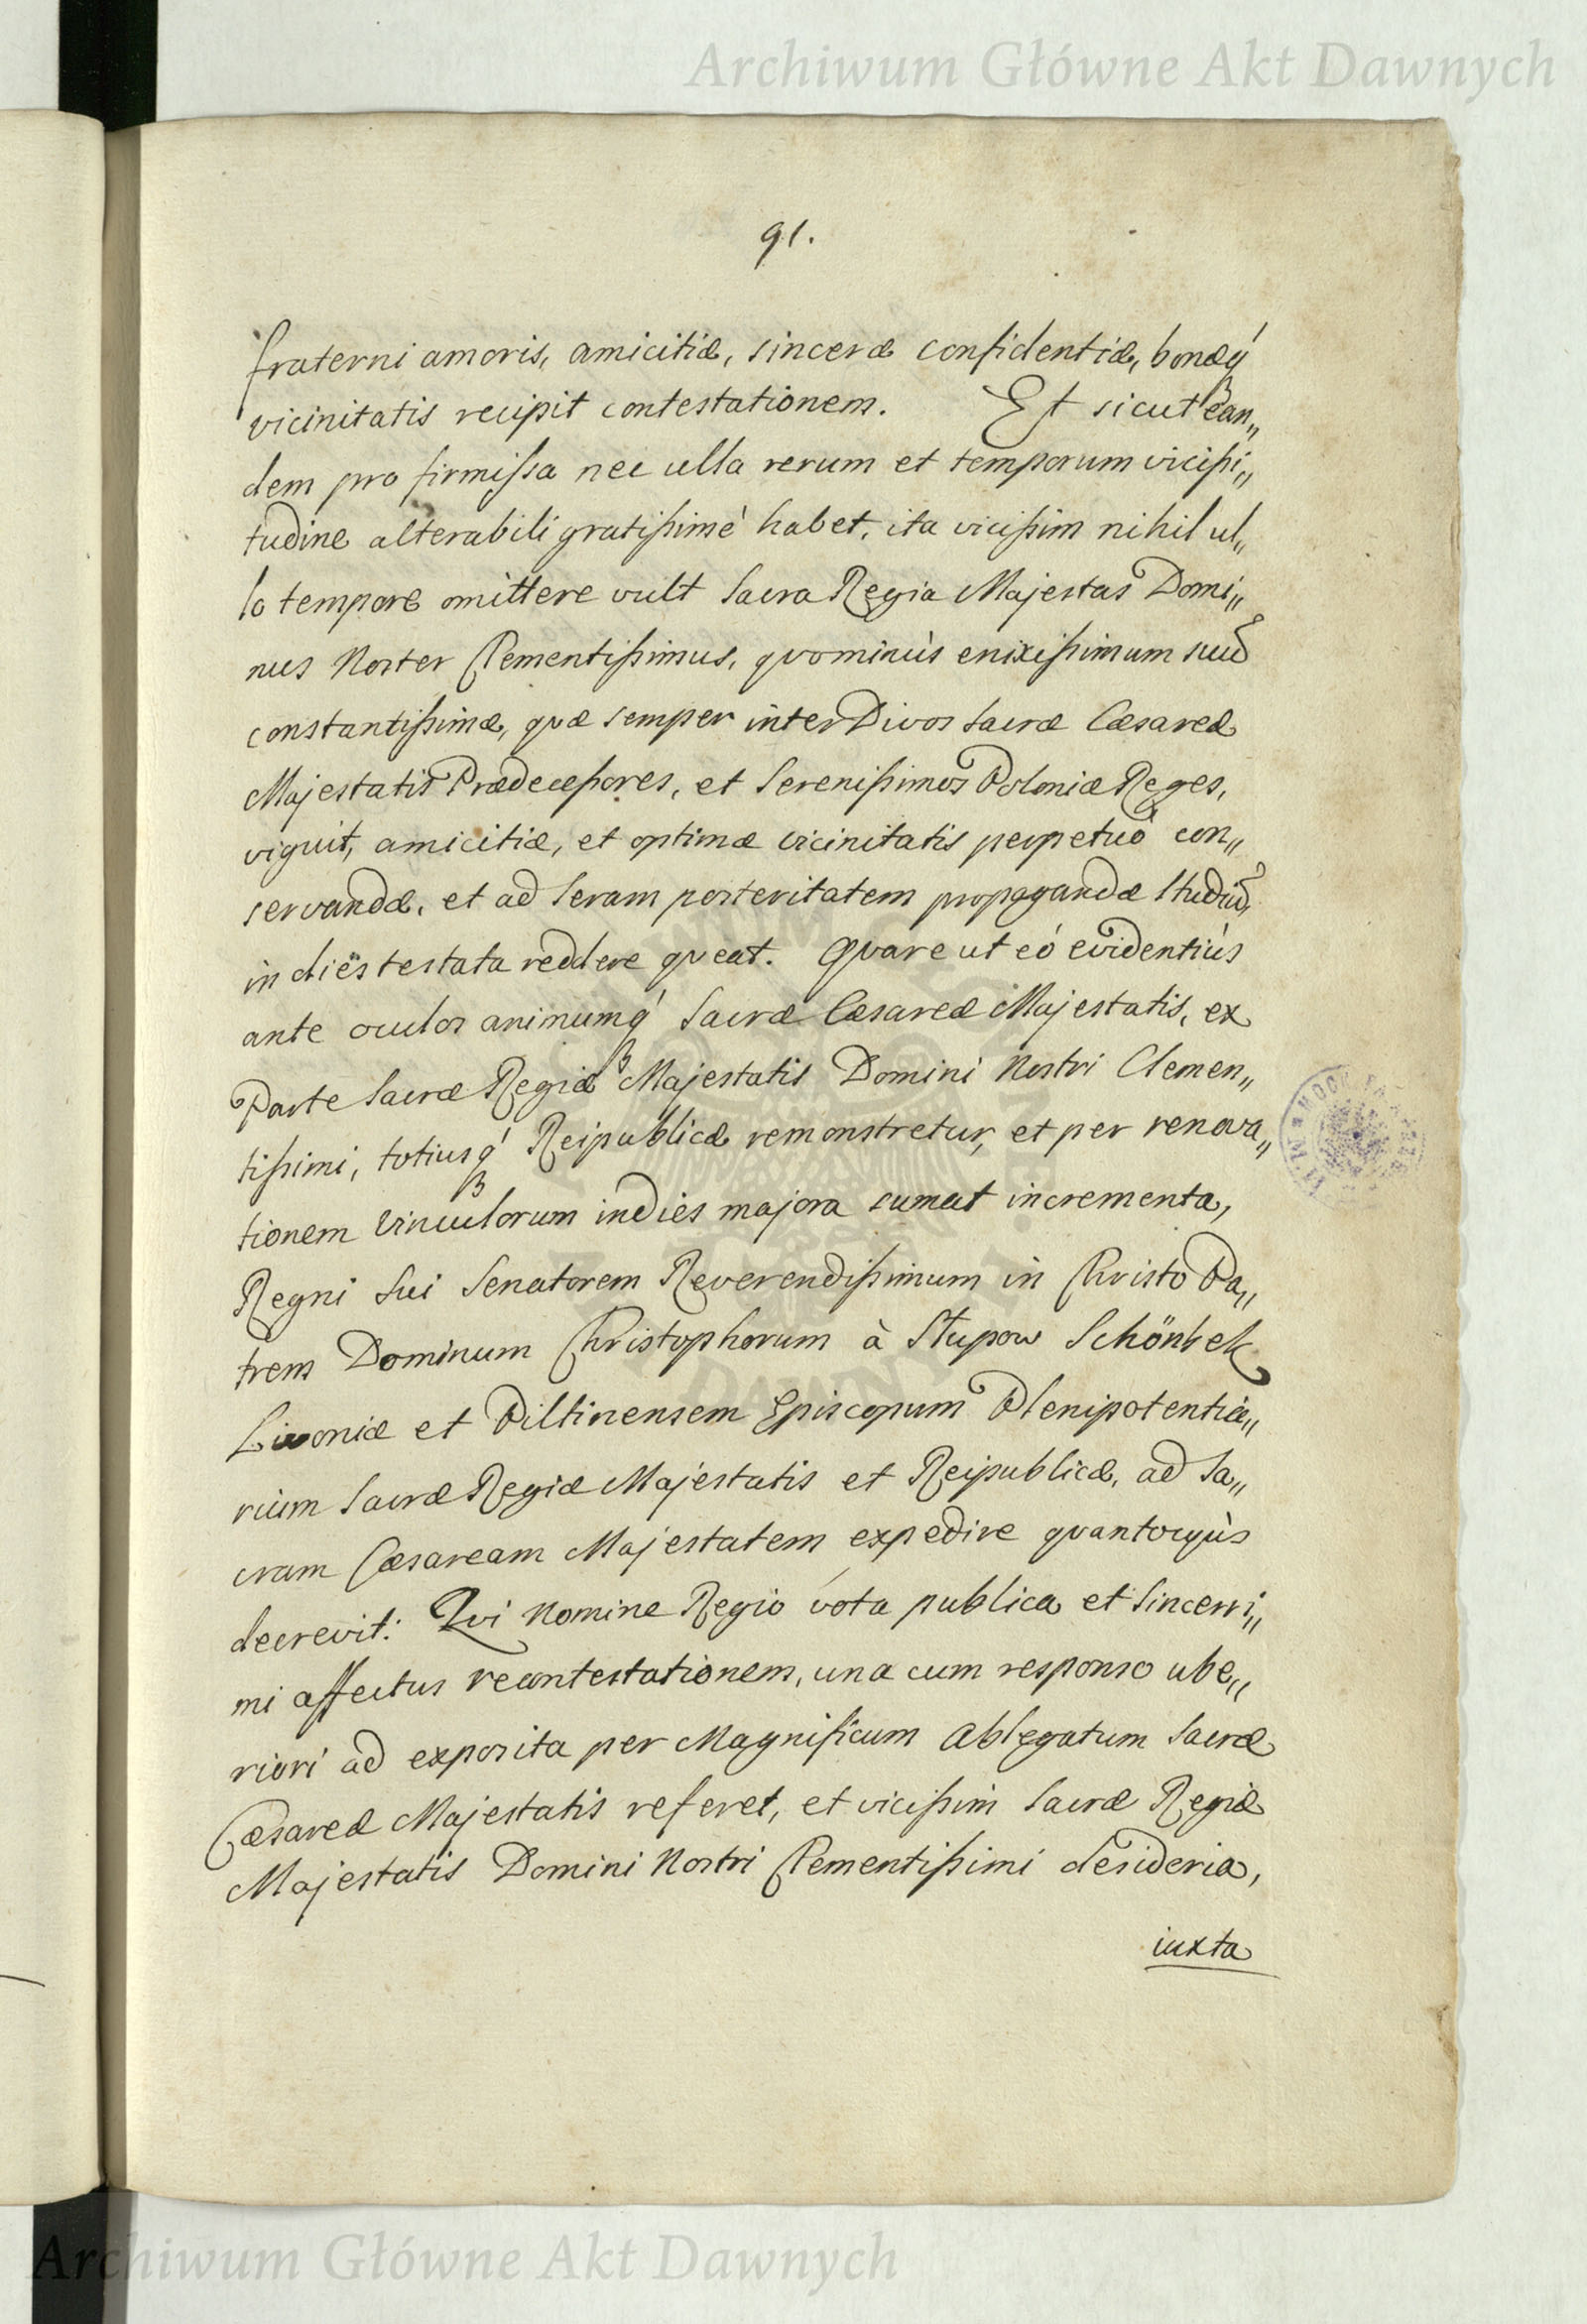 Archiwum Główne Akt Dawnych
91.
fraterni amoris, amicitiæ, sinceræ confidentiæ, bonæq́
vicinitatis recipit contestationem. Et sicut ean„
dem pro firmissa nec ulla rerum et temporum vicißi„
tudine alterabili gratißimè habet, ita vicißim nihil ul„
lo tempore omittere vult Sacra Regia Majestas Domi„
nus Noster Clementißimus, qvominùs enixißimum suũ
constantißimæ, qvæ semper inter Divos Sacræ Cæsareæ
Majestatis Prædeceßores, et Serenißimos Poloniæ Reges,
viguit, amicitiæ, et optimæ vicinitatis perpetuò con„
servandæ, et ad seram posteritatem propagandæ studiũ,
in diës testata reddere qveat. Qvare ut eó evidentiùs
ante oculos animumq́ Sacræ Cæsareæ Majestatis, ex
Parte Sacræ Regiæ Majestatis Domini Nostri Clemen„
tißimi, totiusq́ Reipublicæ remonstretur, et per renova„
tionem vinculorum indies majora sumat incrementa,
Regni Sui Senatorem Reverendißimum in Christo Pa„
trem Dominum Christophorum à Słupow Schönbek
Livoniæ et Piltinensem Episcopum Plenipotentia„
rium Sacræ Regiæ Majestatis et Reipublicæ, ad Sa„
cram Cæsaream Majestatem expedire qvantocyùs
decrevit: Qvi Nomine Regio vota publica et Sincerri„
mi affectus recontestationem, una cum responso ube„
riori ad exposita per Magnificum Ablegatum Sacræ
Cæsareæ Majestatis referet, et vicißim Sacræ Regiæ
Majestatis Domini Nostri Clementißimi desideria,
iuxta
Archiwum Główne Akt Dawnych